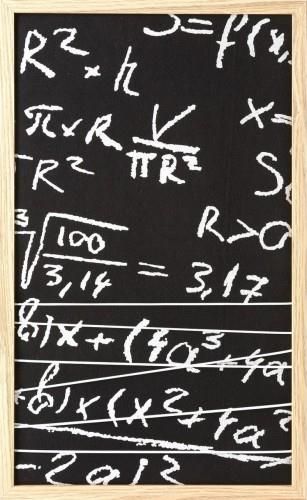 S = f(x,
R² × h
x =
π × R V/πR²
-R² S
R > 0
³√100/3,14 = 3,17
b)x + (4a³ + 4a
b) × (x² + 4a²